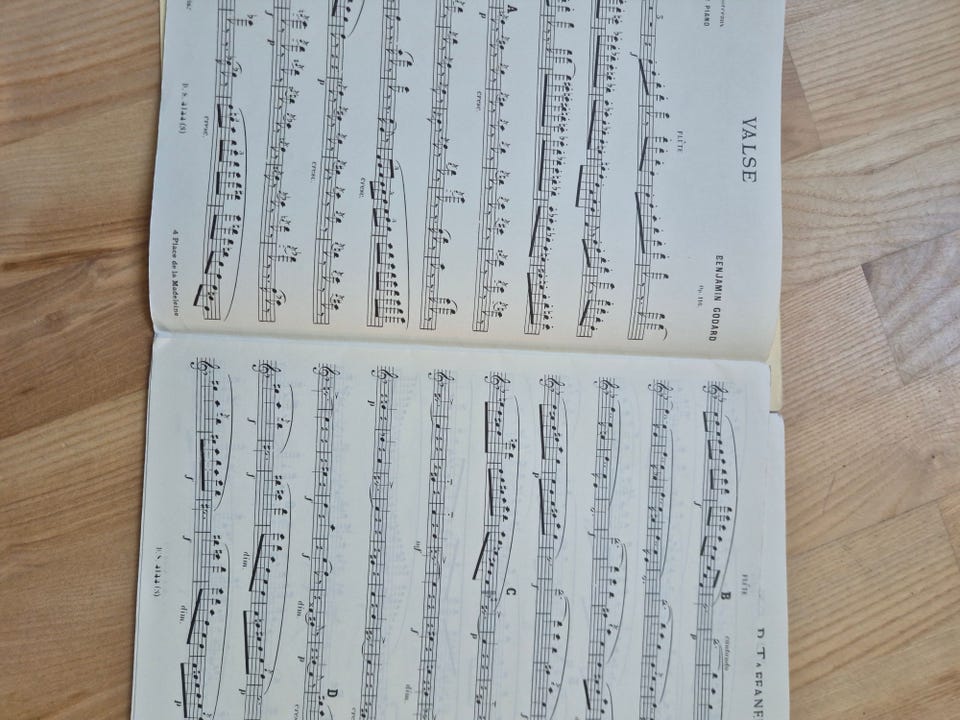 PIANO
VALSE
BENJAMIN GODARD
Op. 116.
FLÛTE
3
f
A
p
cresc.
cresc.
p
cresc.
p
3
cresc.
D. S. 4144 (S)
4 Place de la Madeleine
FLÛTE
B
cantando
f
p
f
f
p
f
C
p
mf
f
dim.
p
f
dim.
D
f
dim.
p
f
f
dim.
p
D. S. 4144 (S)